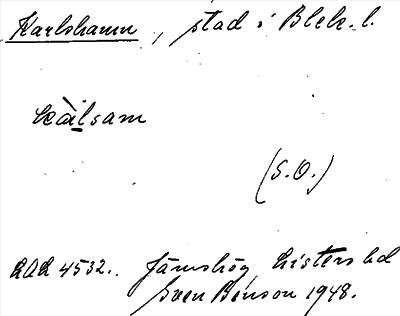 Karlshamn, stad i Blek. l.
kàlsam
(S.O.)
LAL 4532. Jämshög, Listers hd
Sven Benson 1948.